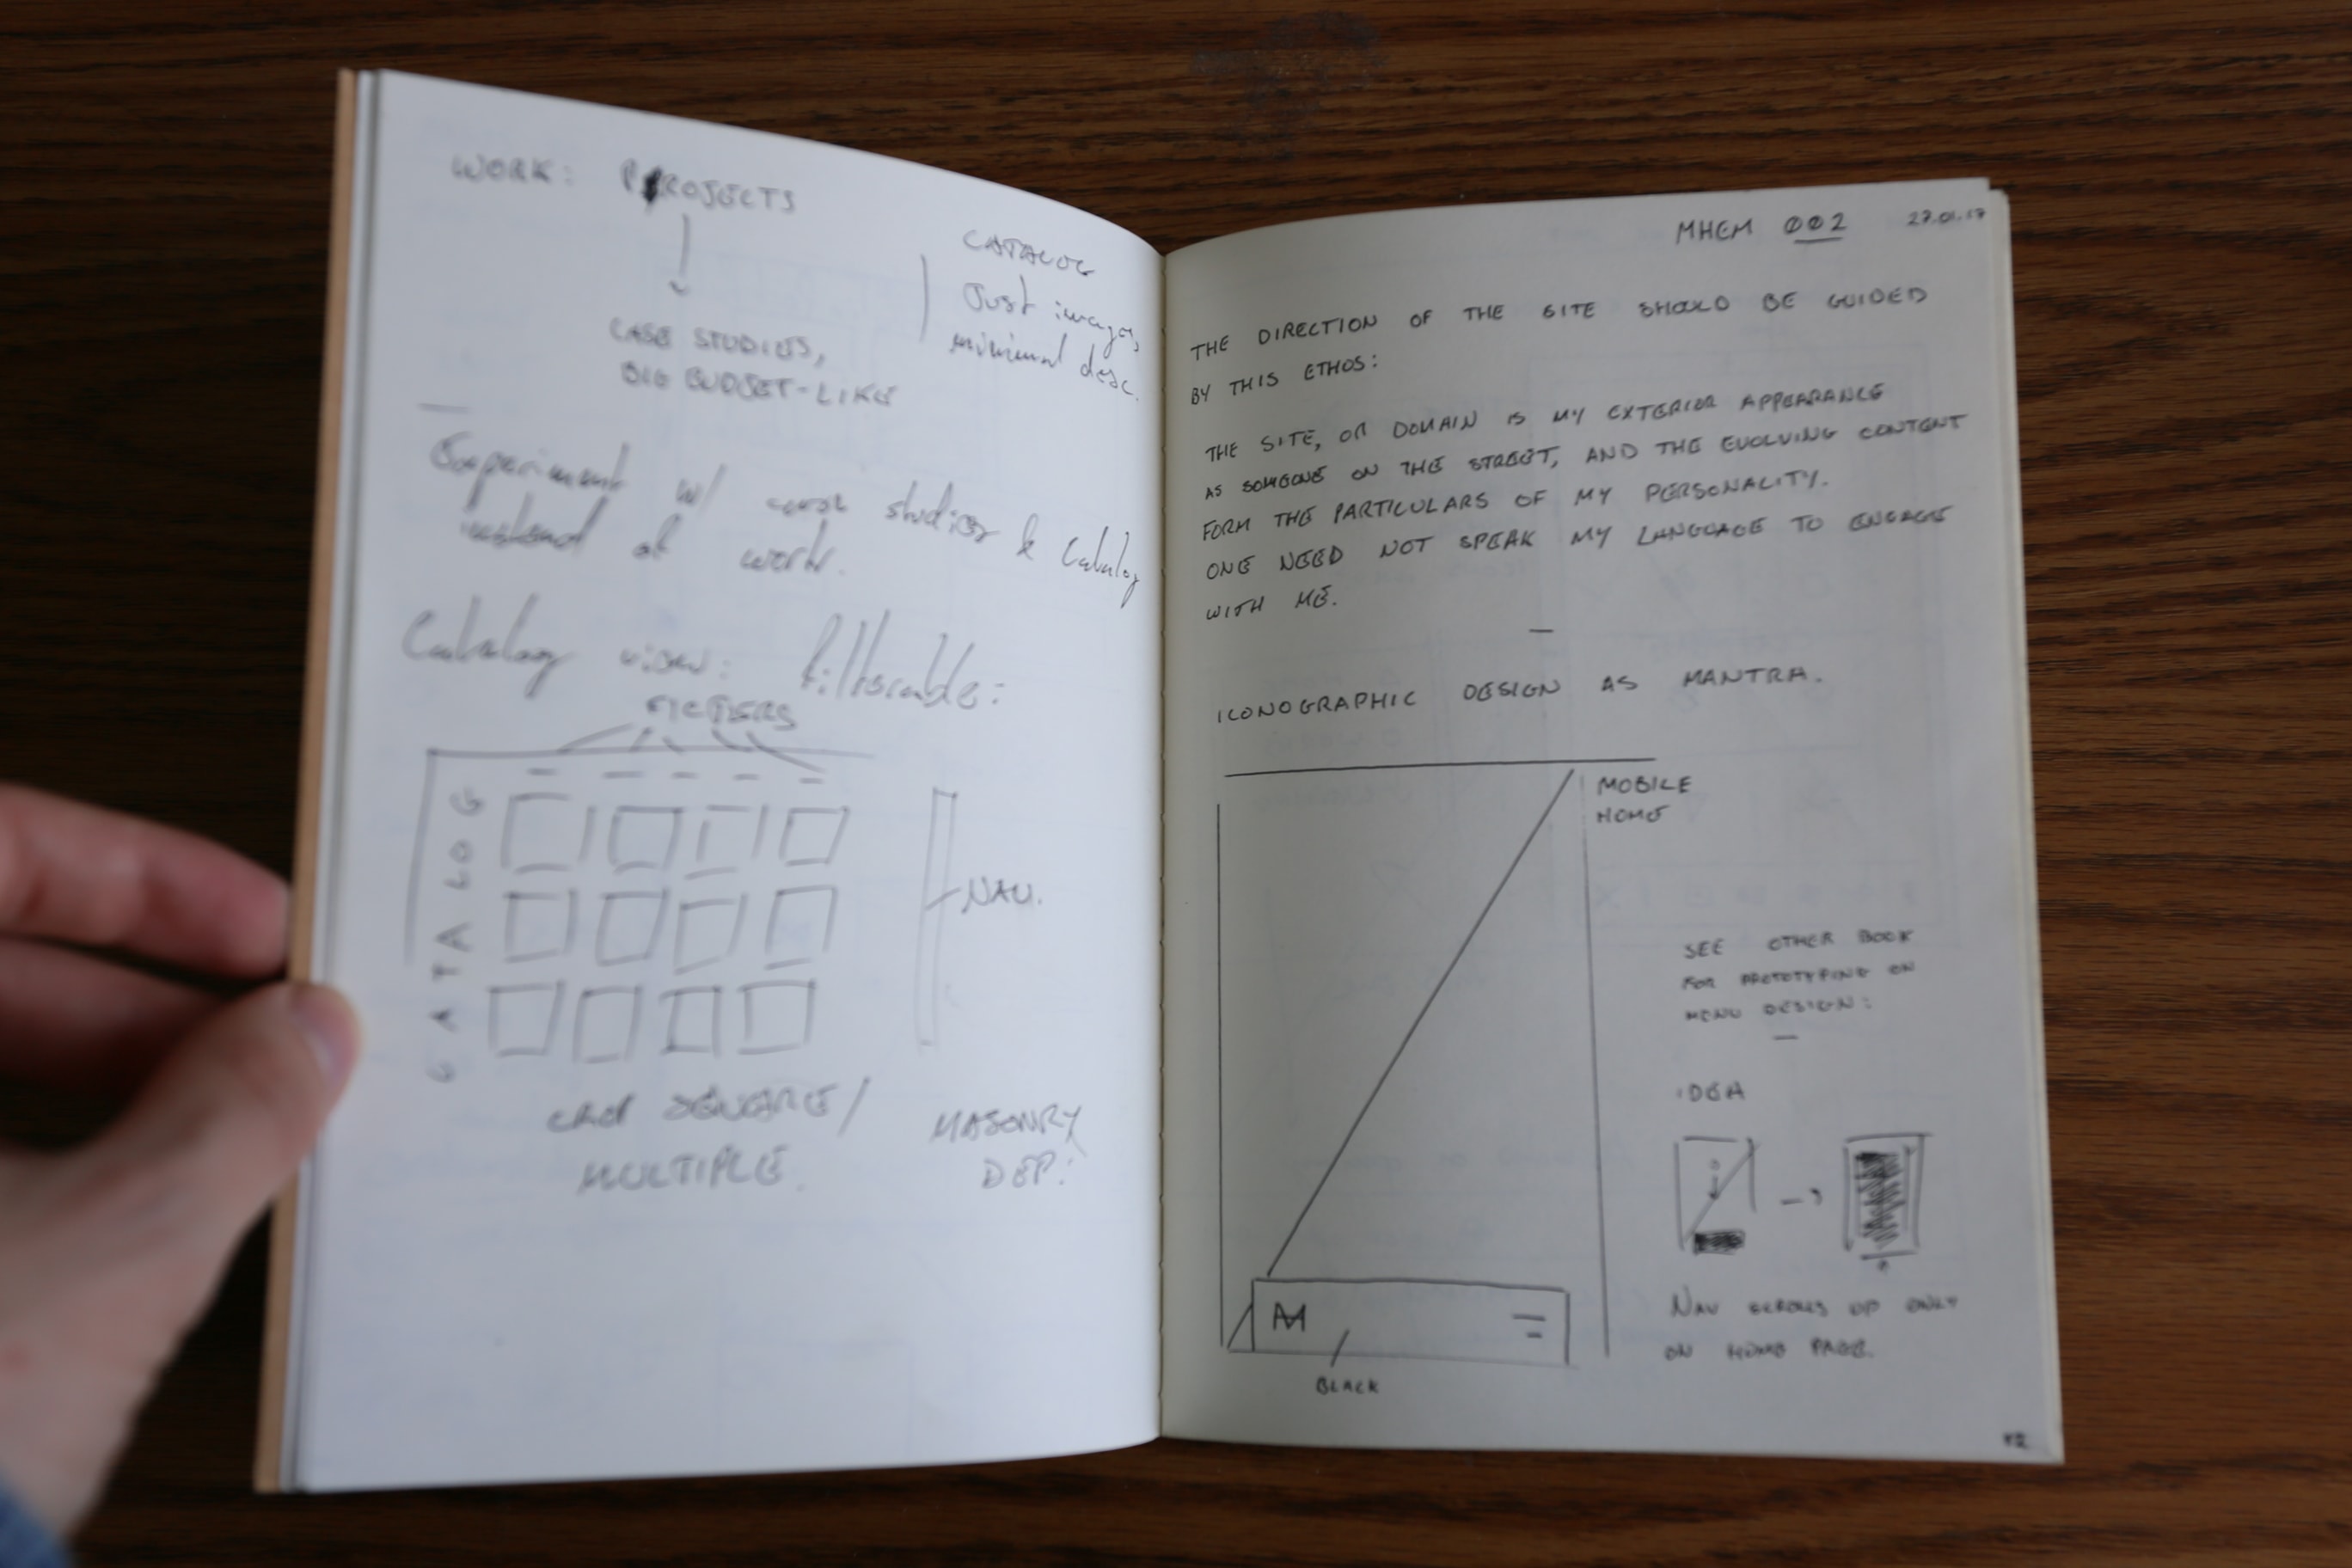 WORK: PROJECTS
CASE STUDIES,
BIG BUDGET-LIKE
CATALOG
Just images,
minimal desc.
Experiment w/ studies & Catalog
instead of work.
Catalog view: filterable:
FILTERS
CATALOG
NAV.
CROP SQUARE/
MULTIPLE.
MASONRY
DEP.
MHEM 002 27.01.17
THE DIRECTION OF THE SITE SHOULD BE GUIDED
BY THIS ETHOS:
THE SITE, OR DOMAIN IS MY EXTERIOR APPEARANCE
AS SOMEONE ON THE STREET, AND THE EVOLVING CONTENT
FORM THE PARTICULARS OF MY PERSONALITY.
ONE NEED NOT SPEAK MY LANGUAGE TO ENGAGE
WITH ME.
ICONOGRAPHIC DESIGN AS MANTRA.
MOBILE
HOME
M
BLACK
SEE OTHER BOOK
FOR PROTOTYPING ON
MENU DESIGN:
IDEA
NAV SCROLLS UP ONLY
ON HOME PAGE.